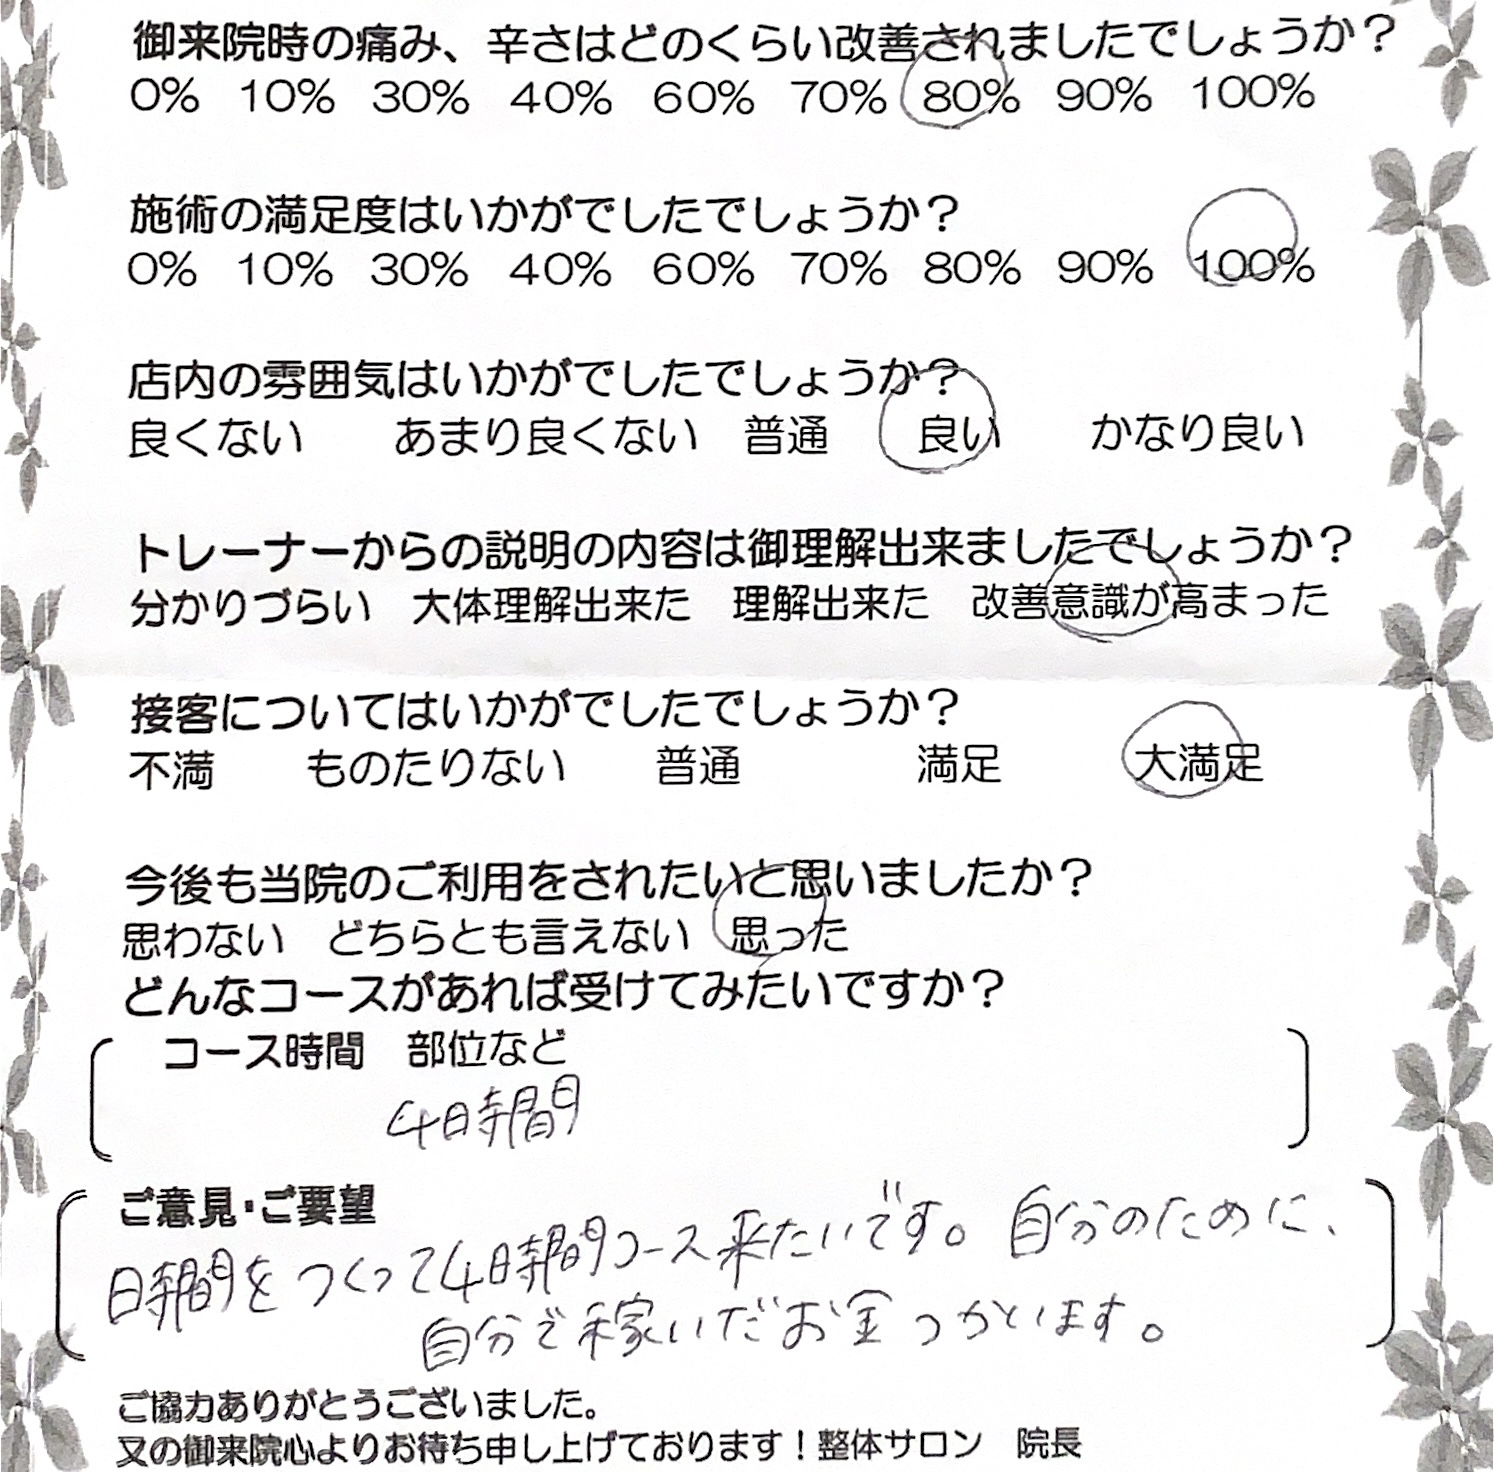 御来院時の痛み、辛さはどのくらい改善されましたでしょうか？
0% 10% 30% 40% 60% 70% 80% 90% 100%
施術の満足度はいかがでしたでしょうか？
0% 10% 30% 40% 60% 70% 80% 90% 100%
店内の雰囲気はいかがでしたでしょうか？
良くない あまり良くない 普通 良い かなり良い
トレーナーからの説明の内容は御理解出来ましたでしょうか？
分かりづらい 大体理解出来た 理解出来た 改善意識が高まった
接客についてはいかがでしたでしょうか？
不満 ものたりない 普通 満足 大満足
今後も当院のご利用をされたいと思いましたか？
思わない どちらとも言えない 思った
どんなコースがあれば受けてみたいですか？
コース時間 部位など
4時間
ご意見・ご要望
時間をつくって4時間コース来たいです。自分のために、
自分で稼いだお金つかいます。
ご協力ありがとうございました。
又の御来院心よりお待ち申し上げております！整体サロン 院長